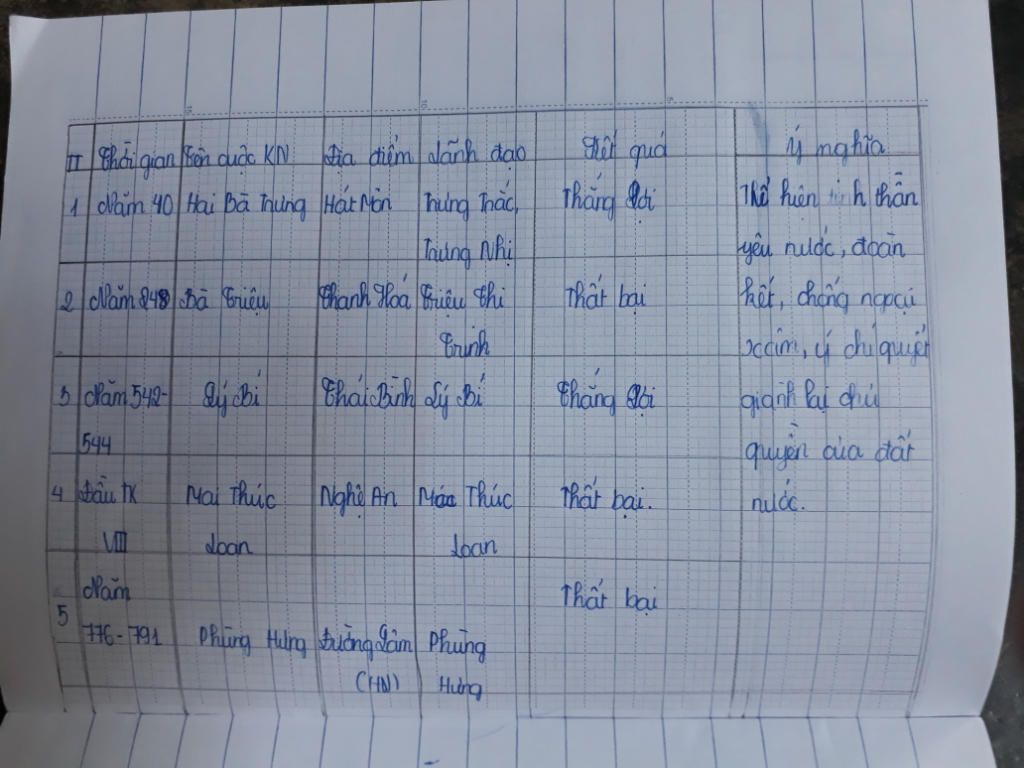 TT Thời gian Tên cuộc KN Địa điểm Lãnh đạo Kết quả Ý nghĩa
1 Năm 40 Hai Bà Trưng Hát Môn Trưng Trắc, Thắng lợi Thể hiện tinh thần
Trưng Nhị yêu nước, đoàn
2 Năm 248 Bà Triệu Thanh Hoá Triệu Thị Thất bại kết, chống ngoại
Trinh xâm, ý chí quyết
3 Năm 542- Lý Bí Thái Bình Lý Bí Thắng lợi giành lại chủ
544 quyền của đất
4 Đầu TK Mai Thúc Nghệ An Mai Thúc Thất bại. nước.
VIII Loan Loan
Năm Thất bại
5 776-791 Phùng Hưng Đường Lâm Phùng
(HN) Hưng